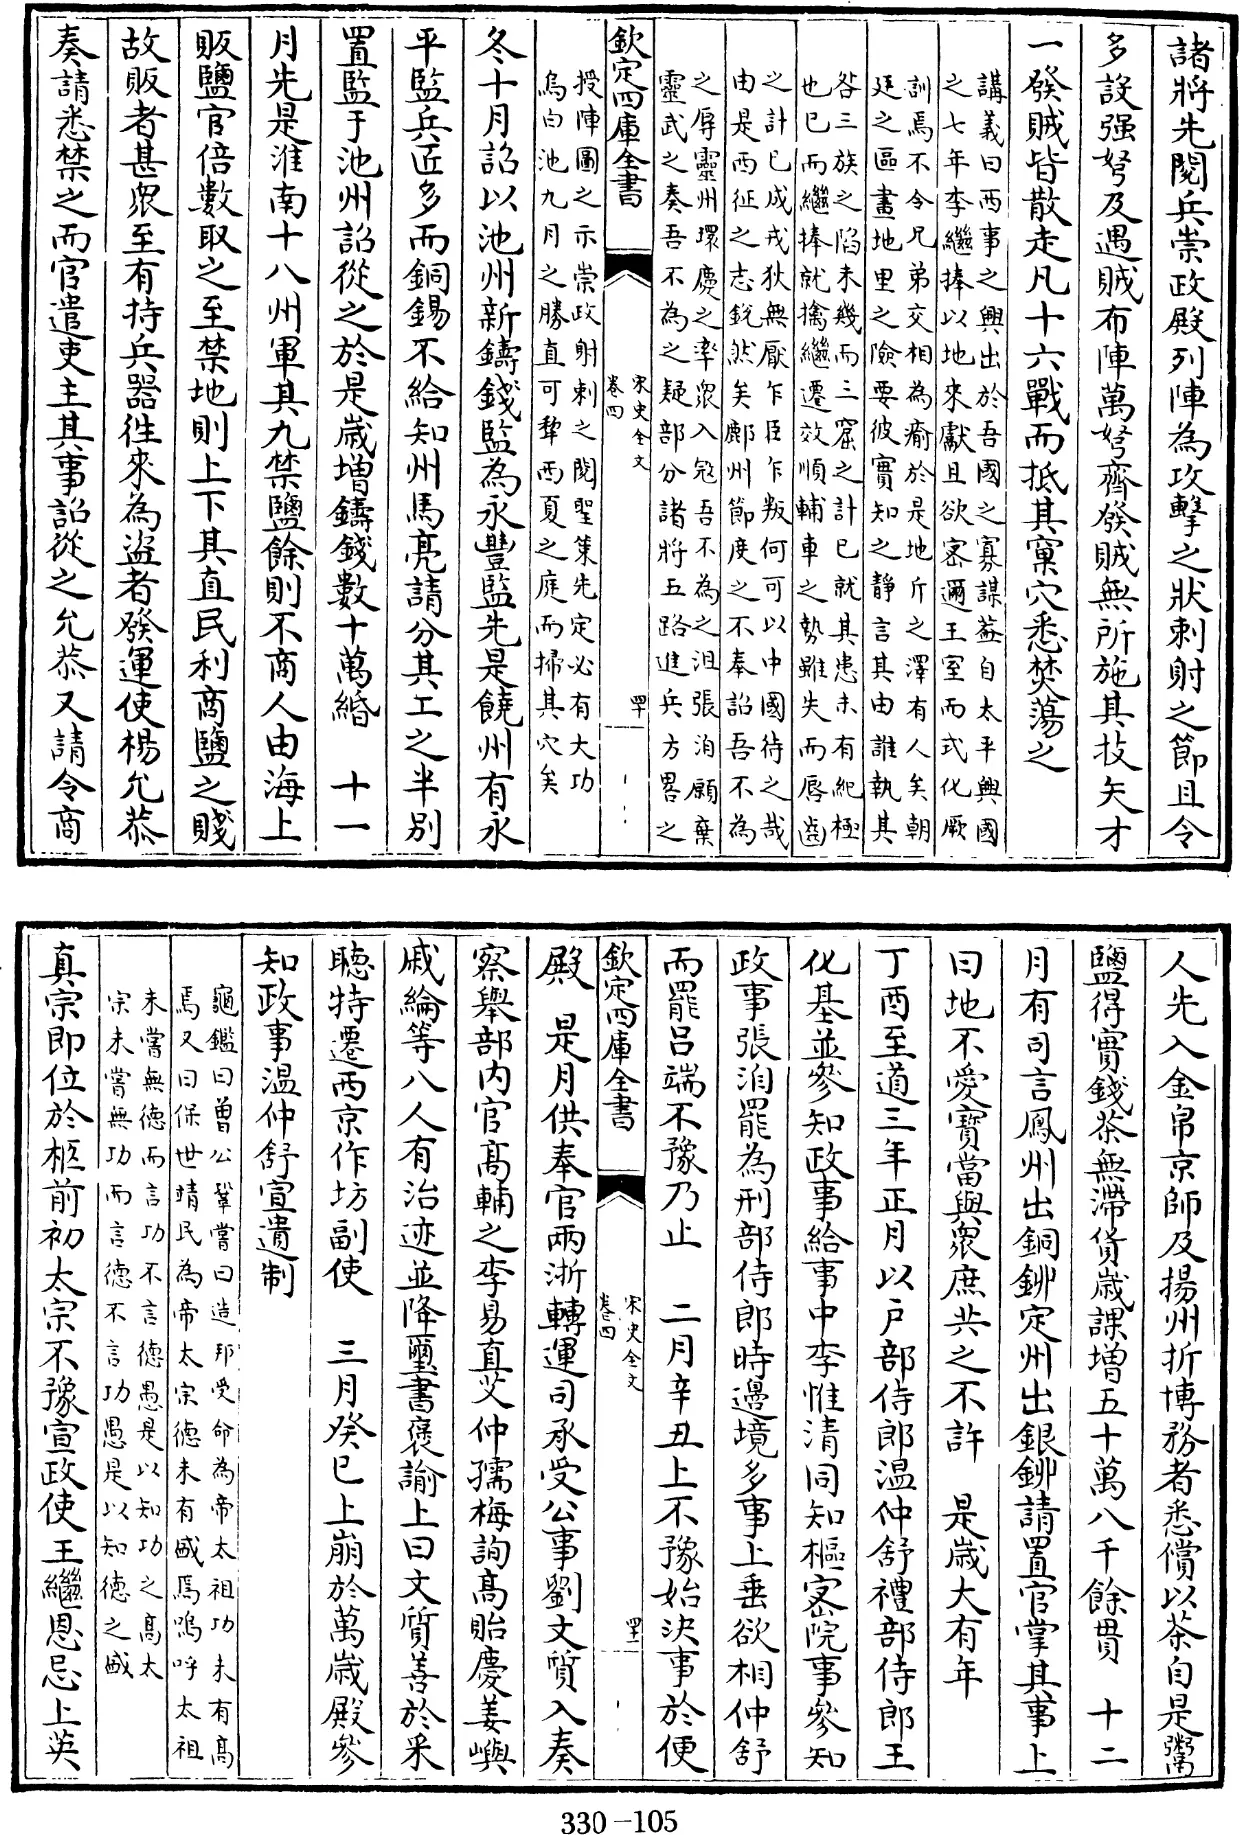 諸將先閱兵崇政殿列陣為攻擊之狀刺射之節且令
多設强弩及遇賊布陣萬弩齊發賊無所施其技矢才
一發賊皆散走凡十六戰而抵其窠穴悉焚蕩之
講義曰西事之興出於吾國之寡謀葢自太平興國
之七年李繼捧以地來獻且欲宻邇王室而式化厥
訓焉不令兄弟交相為瘉於是地斤之澤有人矣朝
廷之區畫地里之險要彼實知之靜言其由誰執其
咎三族之陷未幾而三窟之計已就其患未有紀極
也已而繼捧就擒繼遷效順輔車之勢雖失而唇齒
之計已成戎狄無厭乍臣乍叛何可以中國待之哉
由是西征之志銳然矣鄜州節度之不奉詔吾不為
之辱靈州環慶之率衆入寇吾不為之沮張洎願棄
靈武之奏吾不為之疑部分諸將五路進兵方畧之
欽定四庫全書
宋史全文
卷四
授陣圖之示崇政射刺之閱聖策先定必有大功
烏白池九月之勝直可犂西夏之庭而掃其穴矣
冬十月詔以池州新鑄錢監為永豐監先是饒州有永
平監兵匠多而銅錫不給知州馬亮請分其工之半别
置監于池州詔從之於是歲增鑄錢數十萬緡 十一
月先是淮南十八州軍其九禁鹽餘則不商人由海上
販鹽官倍數取之至禁地則上下其直民利商鹽之賤
故販者甚衆至有持兵器徃來為盜者發運使楊允恭
奏請悉禁之而官遣吏主其事詔從之允恭又請令商
人先入金帛京師及揚州折博務者悉償以茶自是鬻
鹽得實錢茶無滯貨歲課增五十萬八千餘貫 十二
月有司言鳳州出銅鉚定州出銀鉚請置官掌其事上
曰地不愛寶當與衆庶共之不許 是歲大有年
丁酉至道三年正月以戸部侍郎温仲舒禮部侍郎王
化基並參知政事給事中李惟清同知樞宻院事參知
政事張洎罷為刑部侍郎時邉境多事上垂欲相仲舒
而罷吕端不豫乃止 二月辛丑上不豫始決事於便
欽定四庫全書
宋史全文
卷四
殿 是月供奉官兩浙轉運司承受公事劉文質入奏
察舉部内官髙輔之李易直艾仲孺梅詢髙貽慶姜嶼
戚綸等八人有治迹並降璽書褒諭上曰文質善於采
聽特遷西京作坊副使 三月癸巳上崩於萬歲殿參
知政事温仲舒宣遺制
龜鑑曰曾公鞏嘗曰造邦受命為帝太祖功未有髙
焉又曰保世靖民為帝太宗德未有盛焉嗚呼太祖
未嘗無德而言功不言德愚是以知功之髙太
宗未嘗無功而言德不言功愚是以知德之盛
真宗即位於柩前初太宗不豫宣政使王繼恩忌上英
330-105